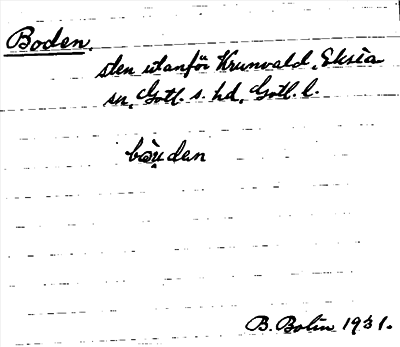 Boden.
sten utanför Krunvald, Eksta
sn, Gotl. s. hd, Gotl. l.
bòu̯den
B. Bolin 1931.